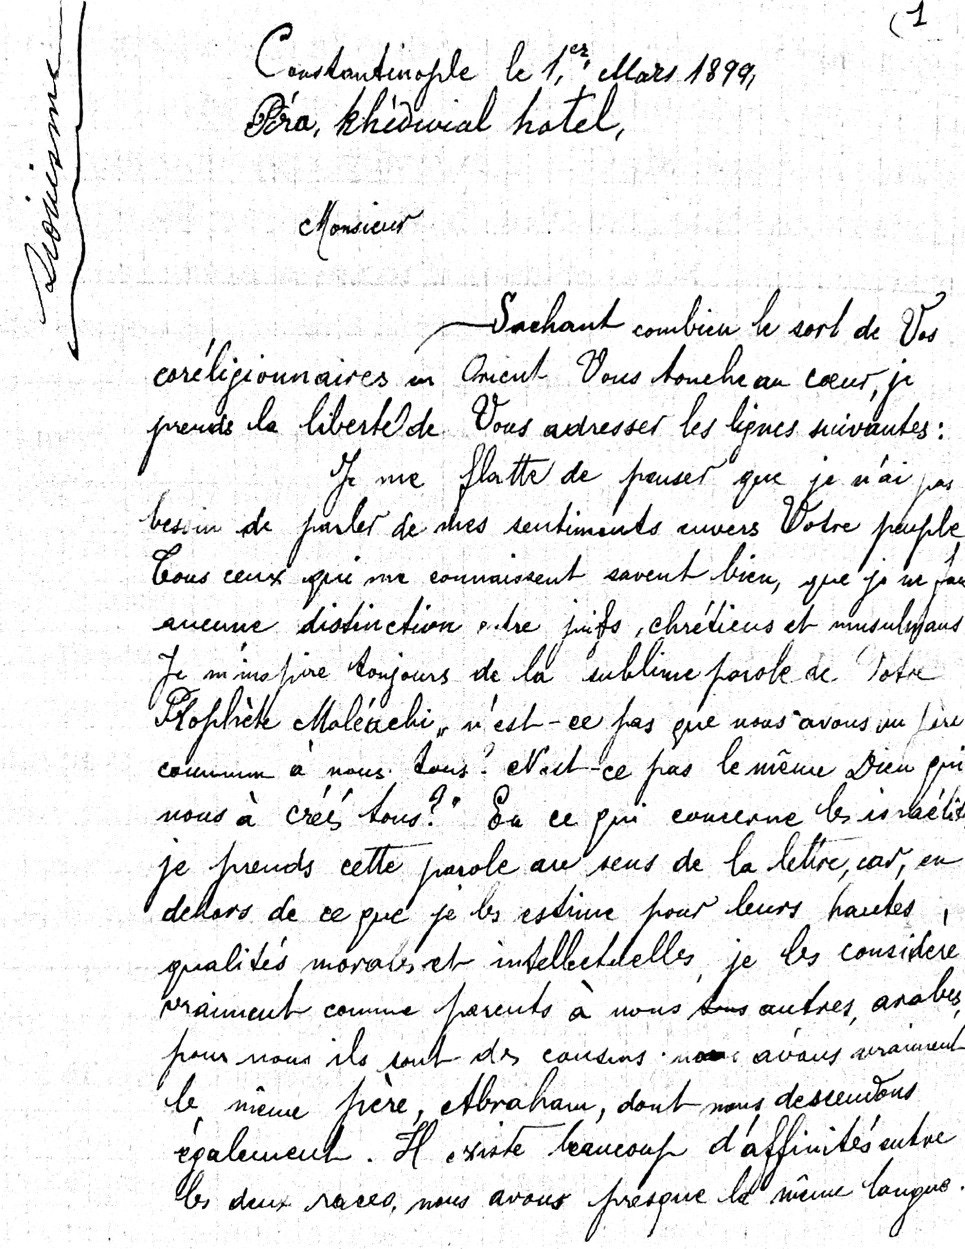 (1
Sionisme
Constantinople le 1er Mars 1899,
Péra, khédivial hotel,
Monsieur
Sachant combien le sort de Vos
coréligionnaires en Orient Vous touche au cœur, je
prends la liberté de Vous adresser les lignes suivantes:
Je me flatte de penser que je n'ai pas
besoin de parler de mes sentiments envers Votre peuple
Tous ceux qui me connaissent savent bien, que je ne fais
aucune distinction entre juifs, chrétiens et musulmans
Je m'inspire toujours de la sublime parole de Votre
Prophète Maléachi„ n'est-ce pas que nous avons un père
commun à nous tous? N'est-ce pas le même Dieu qui
nous à créés tous?" En ce qui concerne les israélites
je prends cette parole au sens de la lettre, car, en
dehors de ce que je les estime pour leurs hautes
qualités morales et intellectuelles, je les considère
vraiment comme parents à nous autres, arabes,
pour nous ils sont des cousins. nous avons vraiment
le même père, Abraham, dont nous descendons
également. Il existe beaucoup d'affinités entre
les deux races, nous avons presque la même langue.